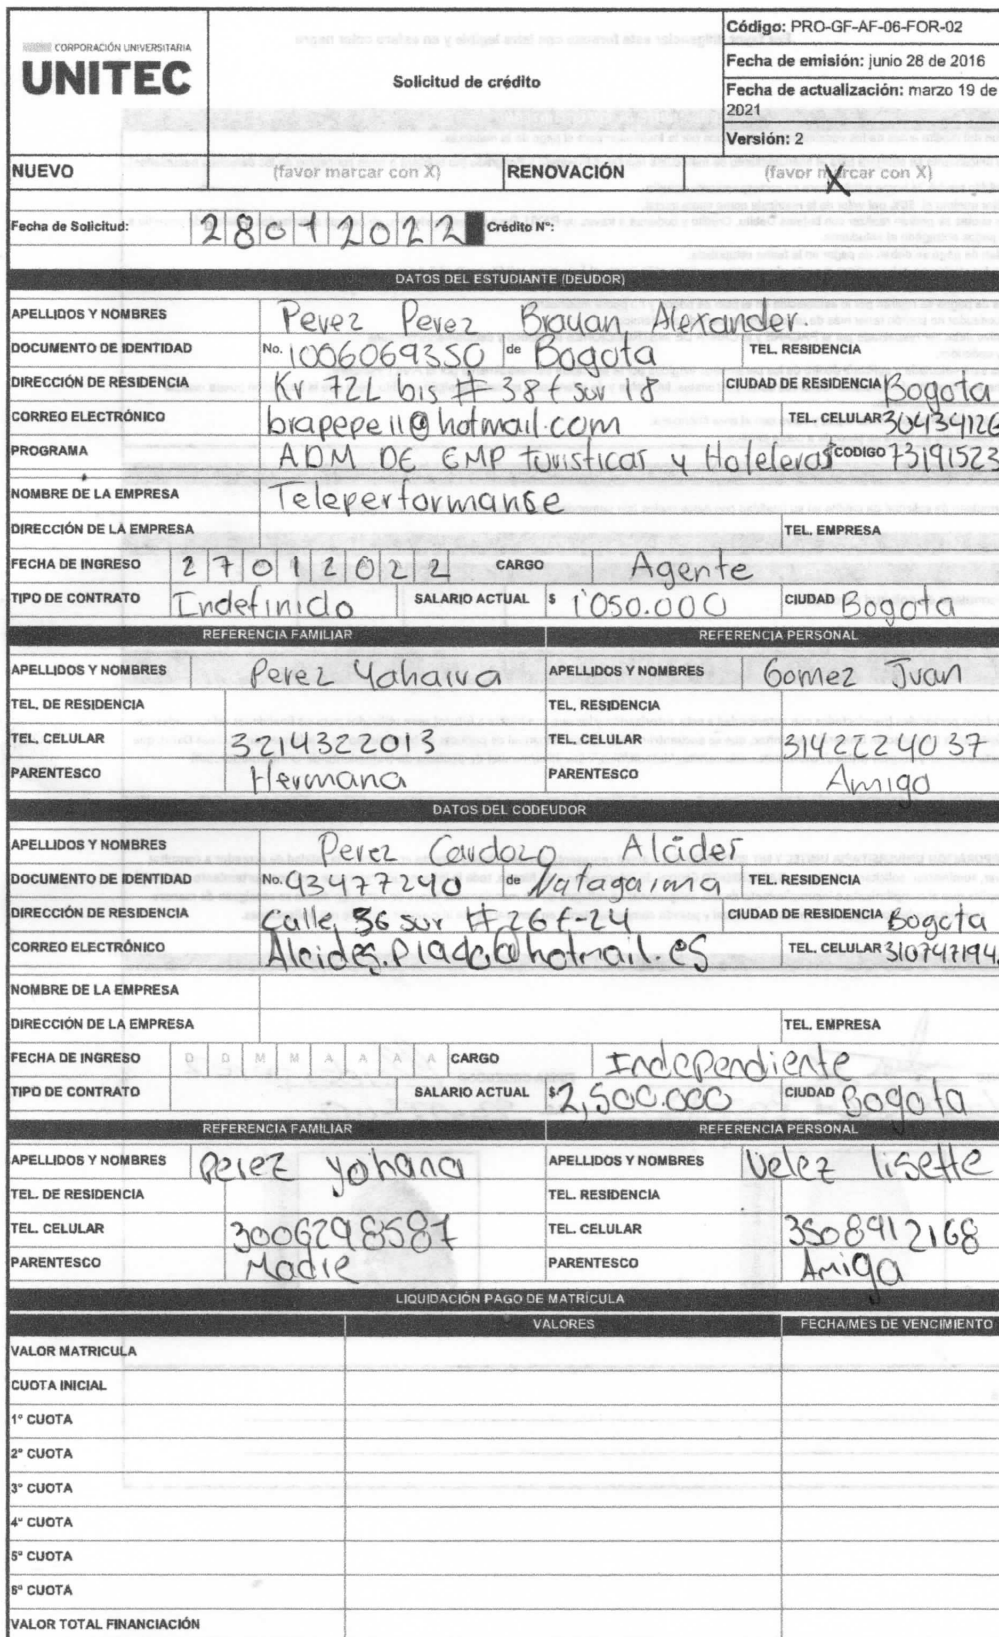 CORPORACIÓN UNIVERSITARIA
UNITEC
Solicitud de crédito
Código: PRO-GF-AF-06-FOR-02
Fecha de emisión: junio 28 de 2016
Fecha de actualización: marzo 19 de 2021
Versión: 2
NUEVO (favor marcar con X) RENOVACIÓN (favor marcar con X) X
Fecha de Solicitud: 28012022 Crédito N°:
DATOS DEL ESTUDIANTE (DEUDOR)
APELLIDOS Y NOMBRES Perez Perez Brayan Alexander.
DOCUMENTO DE IDENTIDAD No. 1006069350 de Bogota TEL. RESIDENCIA
DIRECCIÓN DE RESIDENCIA Kr 72L bis # 38f sur 18 CIUDAD DE RESIDENCIA Bogota
CORREO ELECTRÓNICO brapepe11@hotmail.com TEL. CELULAR 30434126
PROGRAMA ADM DE EMP turisticas y Hoteleras CODIGO 73191523
NOMBRE DE LA EMPRESA Teleperformanse
DIRECCIÓN DE LA EMPRESA TEL. EMPRESA
FECHA DE INGRESO 27012022 CARGO Agente
TIPO DE CONTRATO Indefinido SALARIO ACTUAL $ 1'050.000 CIUDAD Bogota
REFERENCIA FAMILIAR REFERENCIA PERSONAL
APELLIDOS Y NOMBRES Perez Yahaira APELLIDOS Y NOMBRES Gomez Juan
TEL. DE RESIDENCIA TEL. RESIDENCIA
TEL. CELULAR 3214322013 TEL. CELULAR 3142224037
PARENTESCO Hermana PARENTESCO Amigo
DATOS DEL CODEUDOR
APELLIDOS Y NOMBRES Perez Cardozo Alcider
DOCUMENTO DE IDENTIDAD No. 93477240 de Natagaima TEL. RESIDENCIA
DIRECCIÓN DE RESIDENCIA Calle 36 sur #26f-24 CIUDAD DE RESIDENCIA Bogota
CORREO ELECTRÓNICO TEL. CELULAR 310747194
NOMBRE DE LA EMPRESA
DIRECCIÓN DE LA EMPRESA TEL. EMPRESA
FECHA DE INGRESO D D M M A A A A CARGO Independiente
TIPO DE CONTRATO SALARIO ACTUAL $ 2,500.000 CIUDAD Bogota
REFERENCIA FAMILIAR REFERENCIA PERSONAL
APELLIDOS Y NOMBRES Perez yohana APELLIDOS Y NOMBRES Velez lisette
TEL. DE RESIDENCIA TEL. RESIDENCIA
TEL. CELULAR 3006298587 TEL. CELULAR 3508912168
PARENTESCO Madre PARENTESCO Amiga
LIQUIDACIÓN PAGO DE MATRÍCULA
VALORES FECHA/MES DE VENCIMIENTO
VALOR MATRICULA
CUOTA INICIAL
1ª CUOTA
2ª CUOTA
3ª CUOTA
4ª CUOTA
5ª CUOTA
6ª CUOTA
VALOR TOTAL FINANCIACIÓN